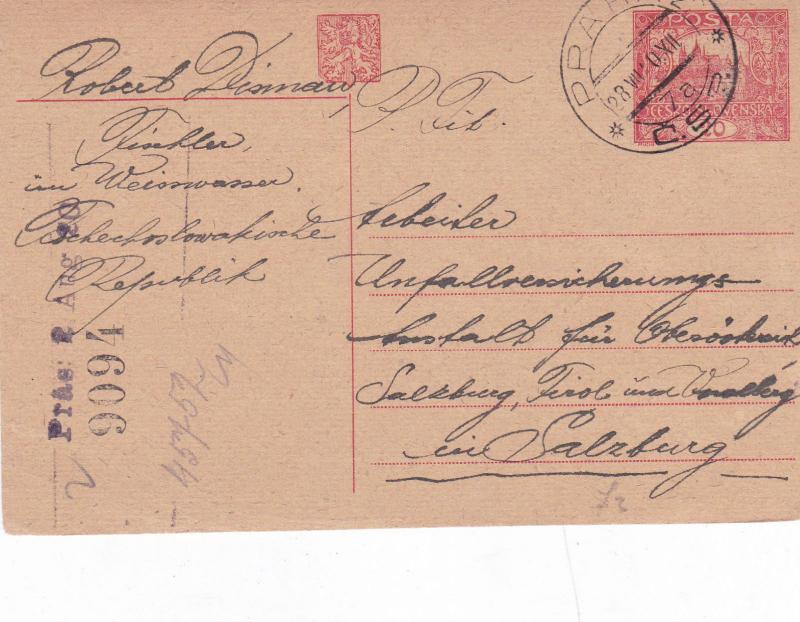 Robert
Tischler,
in Weisswasser.
Tschechoslowakische
Republik
P. Tit.
Arbeiter
Unfallversicherungs
Anstalt für Oberösterreich
Salzburg, Tirol und Vorarlberg
in Salzburg
POSTA
PRAHA
28 VII
Präs: 2 Aug 20
9094